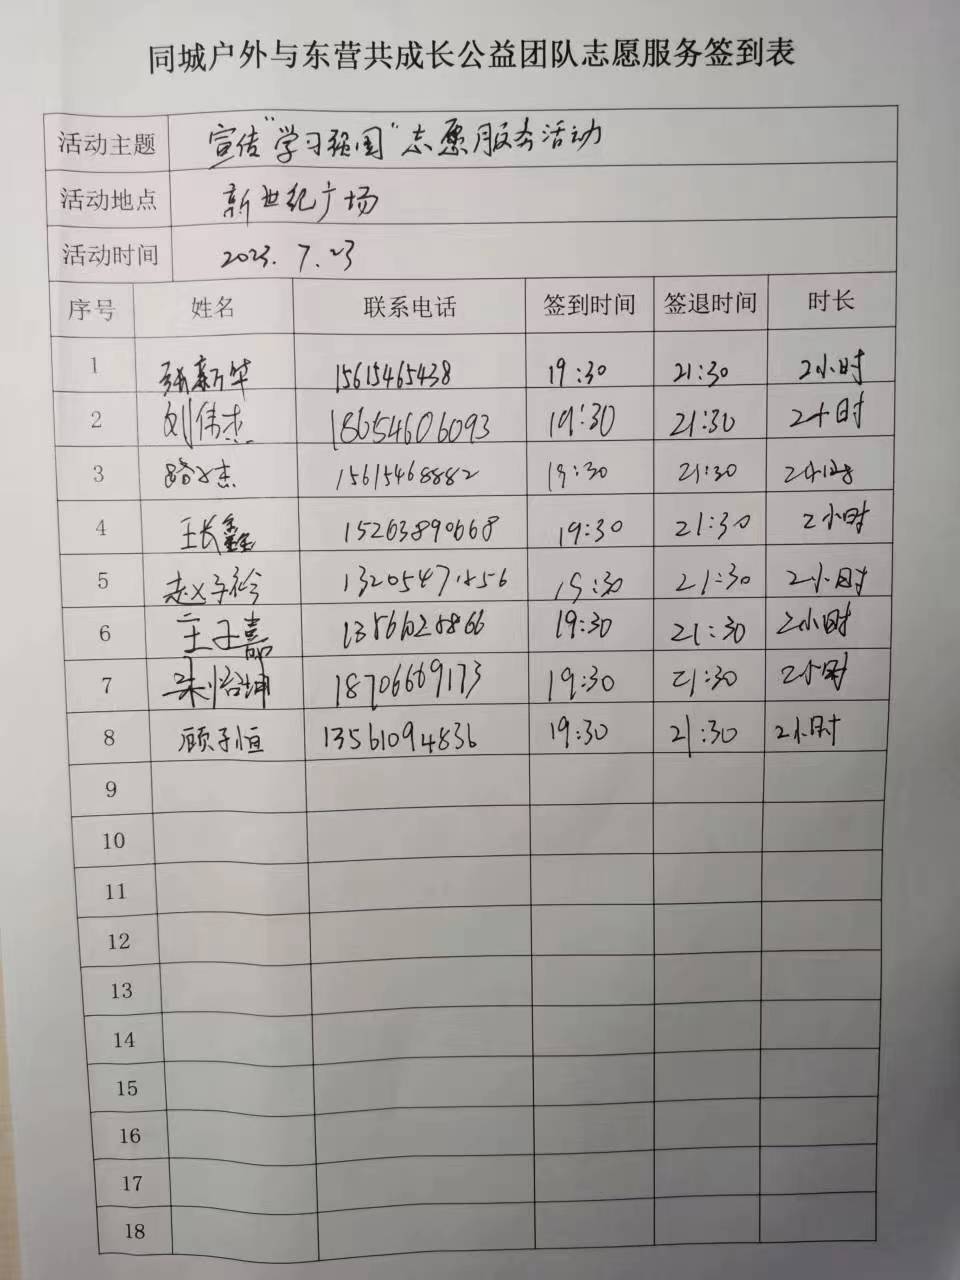 同城户外与东营共成长公益团队志愿服务签到表
活动主题 宣传"学习强国"志愿服务活动
活动地点 新世纪广场
活动时间 2023.7.23
序号 姓名 联系电话 签到时间 签退时间 时长
1 张新华 15615465438 19:30 21:30 2小时
2 刘伟杰 18654606093 19:30 21:30 2小时
3 15615468882 19:30 21:30 2小时
4 王长鑫 15263890668 19:30 21:30 2小时
5 19:30 21:30 2小时
6 王子嘉 19:30 21:30 2小时
7 朱怡坤 18706669173 19:30 21:30 2小时
8 顾子恒 13561094836 19:30 21:30 2小时
9
10
11
12
13
14
15
16
17
18